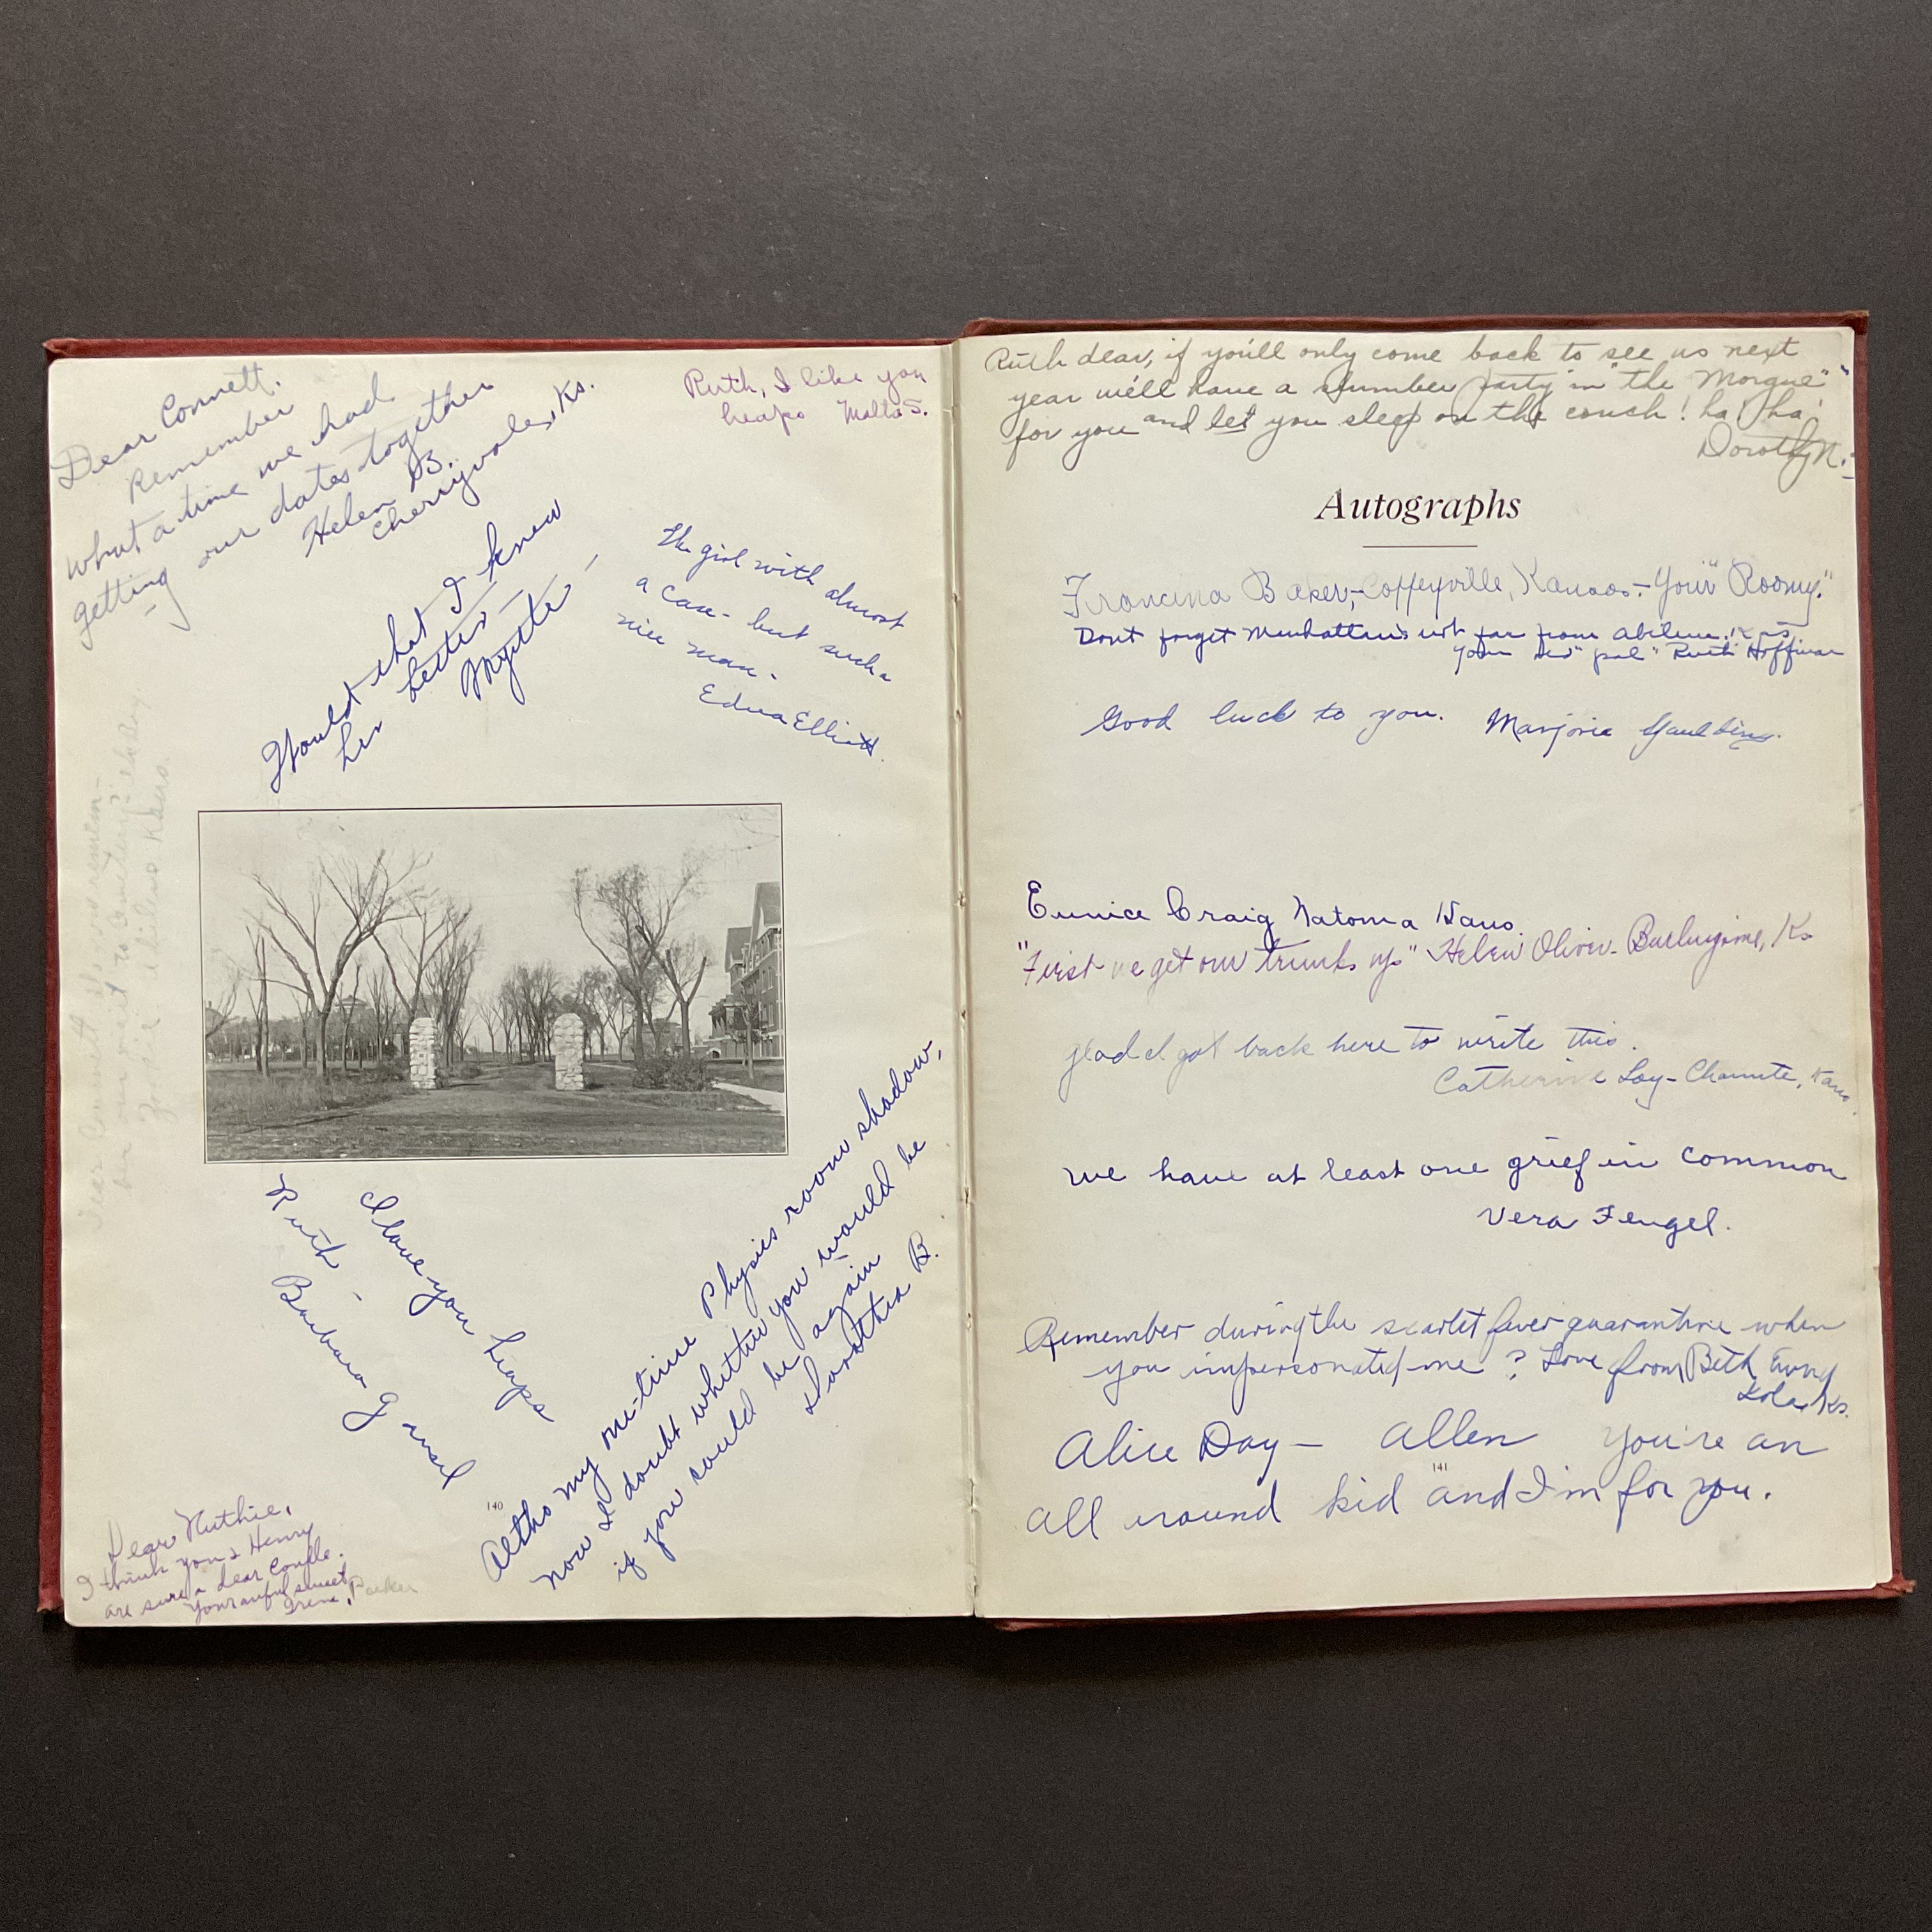 Dear Connett.
Remember
what a time we had
getting our dates together
Helen B.
Cherryvale, Ks.
Ruth, I like you
heaps Melta S.
Would that I knew
her better—
Myrtle—
The girl with almost
a case - but such a
nice man.
Edna Elliott.
Dear Connett
our visit to
Abilene Kans.
Ruth -
I love you heaps
Barbara
Altho my one-time Physics room shadow,
now I doubt whether you would be
if you could be again
Dorothea B.
140
Dear Ruthie,
I think you & Henry
are sure a dear couple.
Your
Irene, Parker
Ruth dear, if you'll only come back to see us next
year we'll have a slumber party in "the Morgue"
for you and let you sleep on the couch! ha! ha!
Dorothy N.
Autographs
Francina Baker, - Coffeyville, Kansas. - Your "Roomy."
Dont forget Manhattan's not far from Abilene. Kas
Your "pal" Ruth Hoffman
Good luck to you. Marjorie
Eunice Craig Natoma Kans.
"First we get our trunks up" Helen Oliver - Burlingame, Ks
Glad I got back here to write this.
Catherine Loy - Chanute, Kans.
We have at least one grief in common
Vera Fengel.
Remember during the scarlet fever quarantine when
you impersonated me? Love from Beth
Iola, Ks.
Alice Day — Allen You're an
all around kid and I'm for you.
141